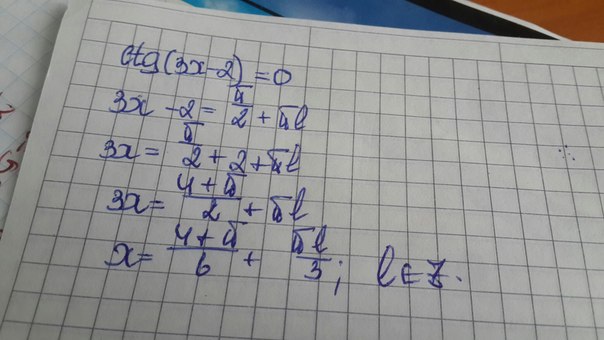 ctg(3x-2)=0
3x-2=π/2+πl
3x=π/2+2+πl
3x=(4+π)/2+πl
x=(4+π)/6+πl/3; l∈Z.